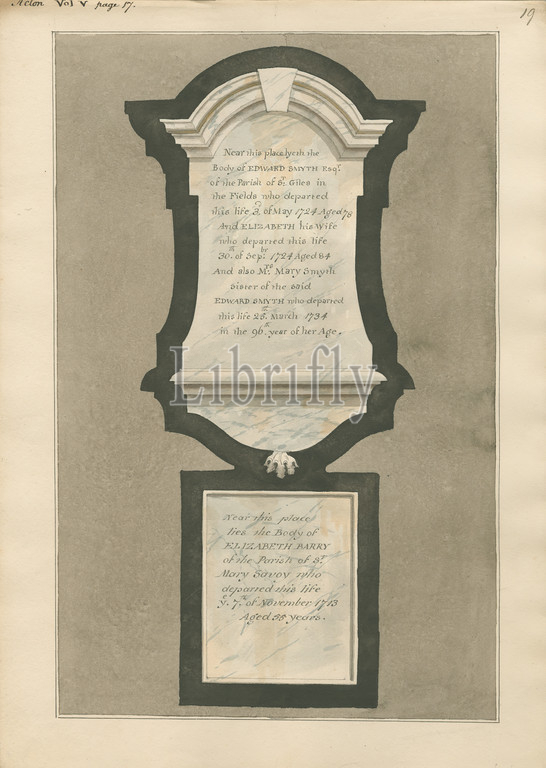 Acton Vol V page 17.
19
Near this place lyeth the
Body of EDWARD SMYTH Esqr.
of the Parish of St. Giles in
the Fields who departed
this life 3d. of May 1724 Aged 78
And ELIZABETH his Wife
who departed this life
30th. of Sepbr. 1724 Aged 84
And also Mrs. Mary Smyth
Sister of the said
EDWARD SMYTH who departed
this life 25th. March 1734
in the 96th. year of her Age.
Librifly
Near this place
lies the Body of
ELIZABETH BARRY
of the Parish of St.
Mary Savoy who
departed this life
ye. 7th. of November 1713
Aged 55 years.